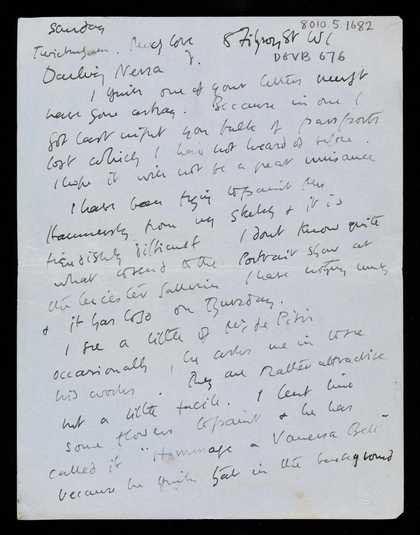 Sunday
8010.5.1682
Twickenham. Much love
8 Fitzroy St W1
D.
DGVB 676
Darling Nessa
I think one of your letters must
have gone astray. Because in one I
got last night you talk of passports
lost which I have not heard of before.
I hope it will not be a great nuisance
I have been trying to paint Mrs
Hammersley from my sketch & it is
fiendishly difficult I dont know quite
what to send to the Portrait show at
the Leicester Galleries I have nothing
& it has to go on Thursday.
I see a little of de Pisis
occasionally, he asks me in to see
his works. They are rather attractive
but a little facile. I lent him
some flowers to paint & he has
called it "Hommage a Vanessa Bell"
because he put in the background